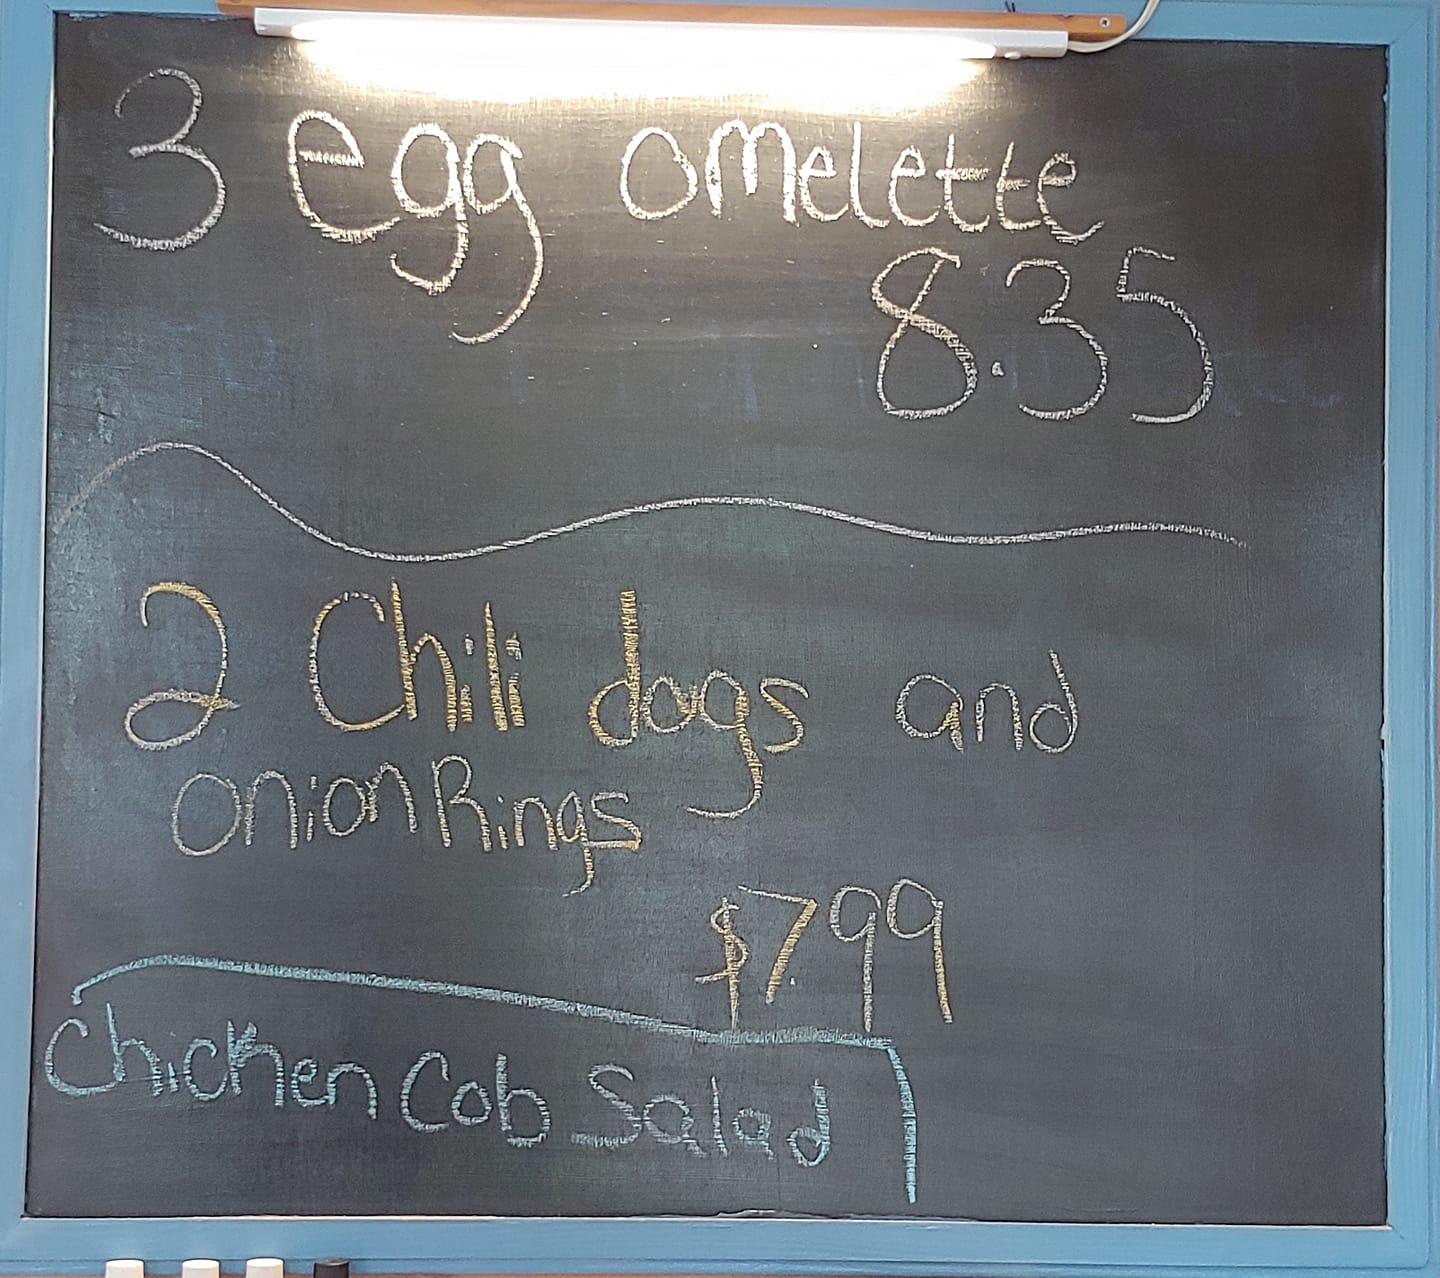 3 egg omelette
8.35
2 Chili dogs and
onion Rings
$7.99
Chicken Cob Salad